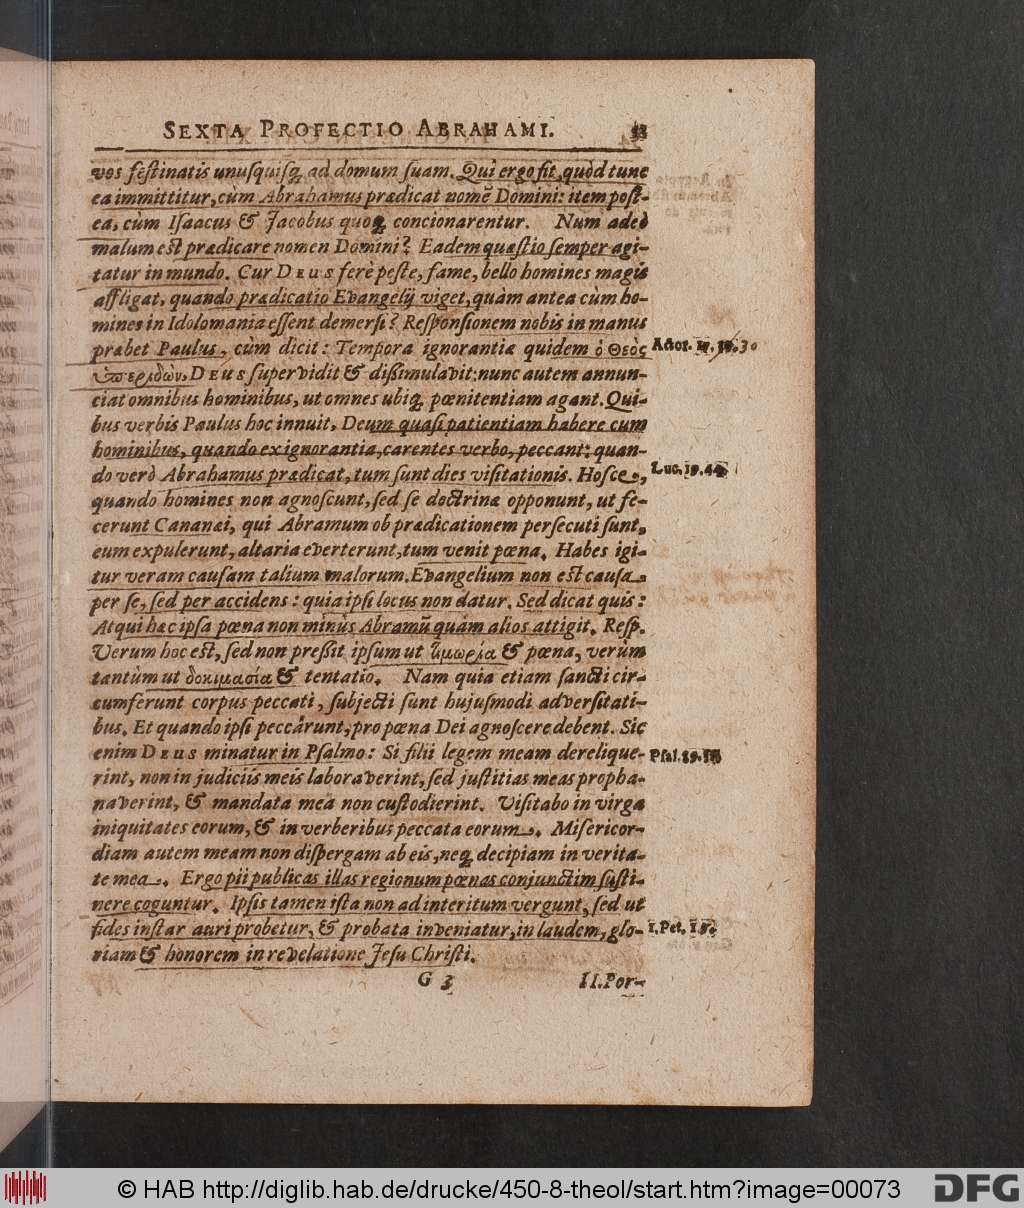 SEXTA PROFECTIO ABRAHAMI. 53
vos festinatis unusquisq; ad domum suam. Qui ergo fit, quòd tunc
ea immittitur, cùm Abrahamus prædicat nomē Domini: item post-
ea, cùm Isaacus & Jacobus quoq; concionarentur. Num adeò
malum est prædicare nomen Domini? Eadem quæstio semper agi-
tatur in mundo. Cur DEUS ferè peste, fame, bello homines magis
affligat, quando prædicatio Evangelij viget, quàm antea cùm ho-
mines in Idolomania essent demersi? Responsionem nobis in manus
præbet Paulus, cùm dicit: Tempora ignorantiæ quidem ὁ Θεὸς
ὑπεριδὼν, DEUS supervidit & dißimulavit: nunc autem annun-
ciat omnibus hominibus, ut omnes ubiq; pœnitentiam agant. Qui-
bus verbis Paulus hoc innuit, Deum quasi patientiam habere cum
hominibus, quando ex ignorantia, carentes verbo, peccant: quan-
do verò Abrahamus prædicat, tum sunt dies visitationis. Hosce,
quando homines non agnoscunt, sed se doctrinæ opponunt, ut fe-
cerunt Cananæi, qui Abramum ob prædicationem persecuti sunt,
eum expulerunt, altaria everterunt, tum venit pœna. Habes igi-
tur veram causam talium malorum. Evangelium non est causa
per se, sed per accidens: quia ipsi locus non datur. Sed dicat quis:
Atqui hæc ipsa pœna non minùs Abramū quàm alios attigit. Resp.
Verum hoc est, sed non preßit ipsum ut τιμωρία & pœna, verùm
tantùm ut δοκιμασία & tentatio. Nam quia etiam sancti cir-
cumferunt corpus peccati, subjecti sunt hujusmodi adversitati-
bus. Et quando ipsi peccârunt, pro pœna Dei agnoscere debent. Sic
enim DEUS minatur in Psalmo: Si filii legem meam derelique-
rint, non in judiciis meis laboraverint, sed justitias meas propha-
naverint, & mandata mea non custodierint. Visitabo in virga
iniquitates eorum, & in verberibus peccata eorum. Misericor-
diam autem meam non dispergam ab eis, neq; decipiam in verita-
te mea. Ergo pii publicas illas regionum pœnas conjunctim susti-
nere coguntur. Ipsis tamen ista non ad interitum vergunt, sed ut
fides instar auri probetur, & probata inveniatur, in laudem, glo-
riam & honorem in revelatione Jesu Christi.
G 3 II. Por-
Luc. 19. 44
Psal. 89.
1. Pet. 1.
© HAB http://diglib.hab.de/drucke/450-8-theol/start.htm?image=00073
DFG